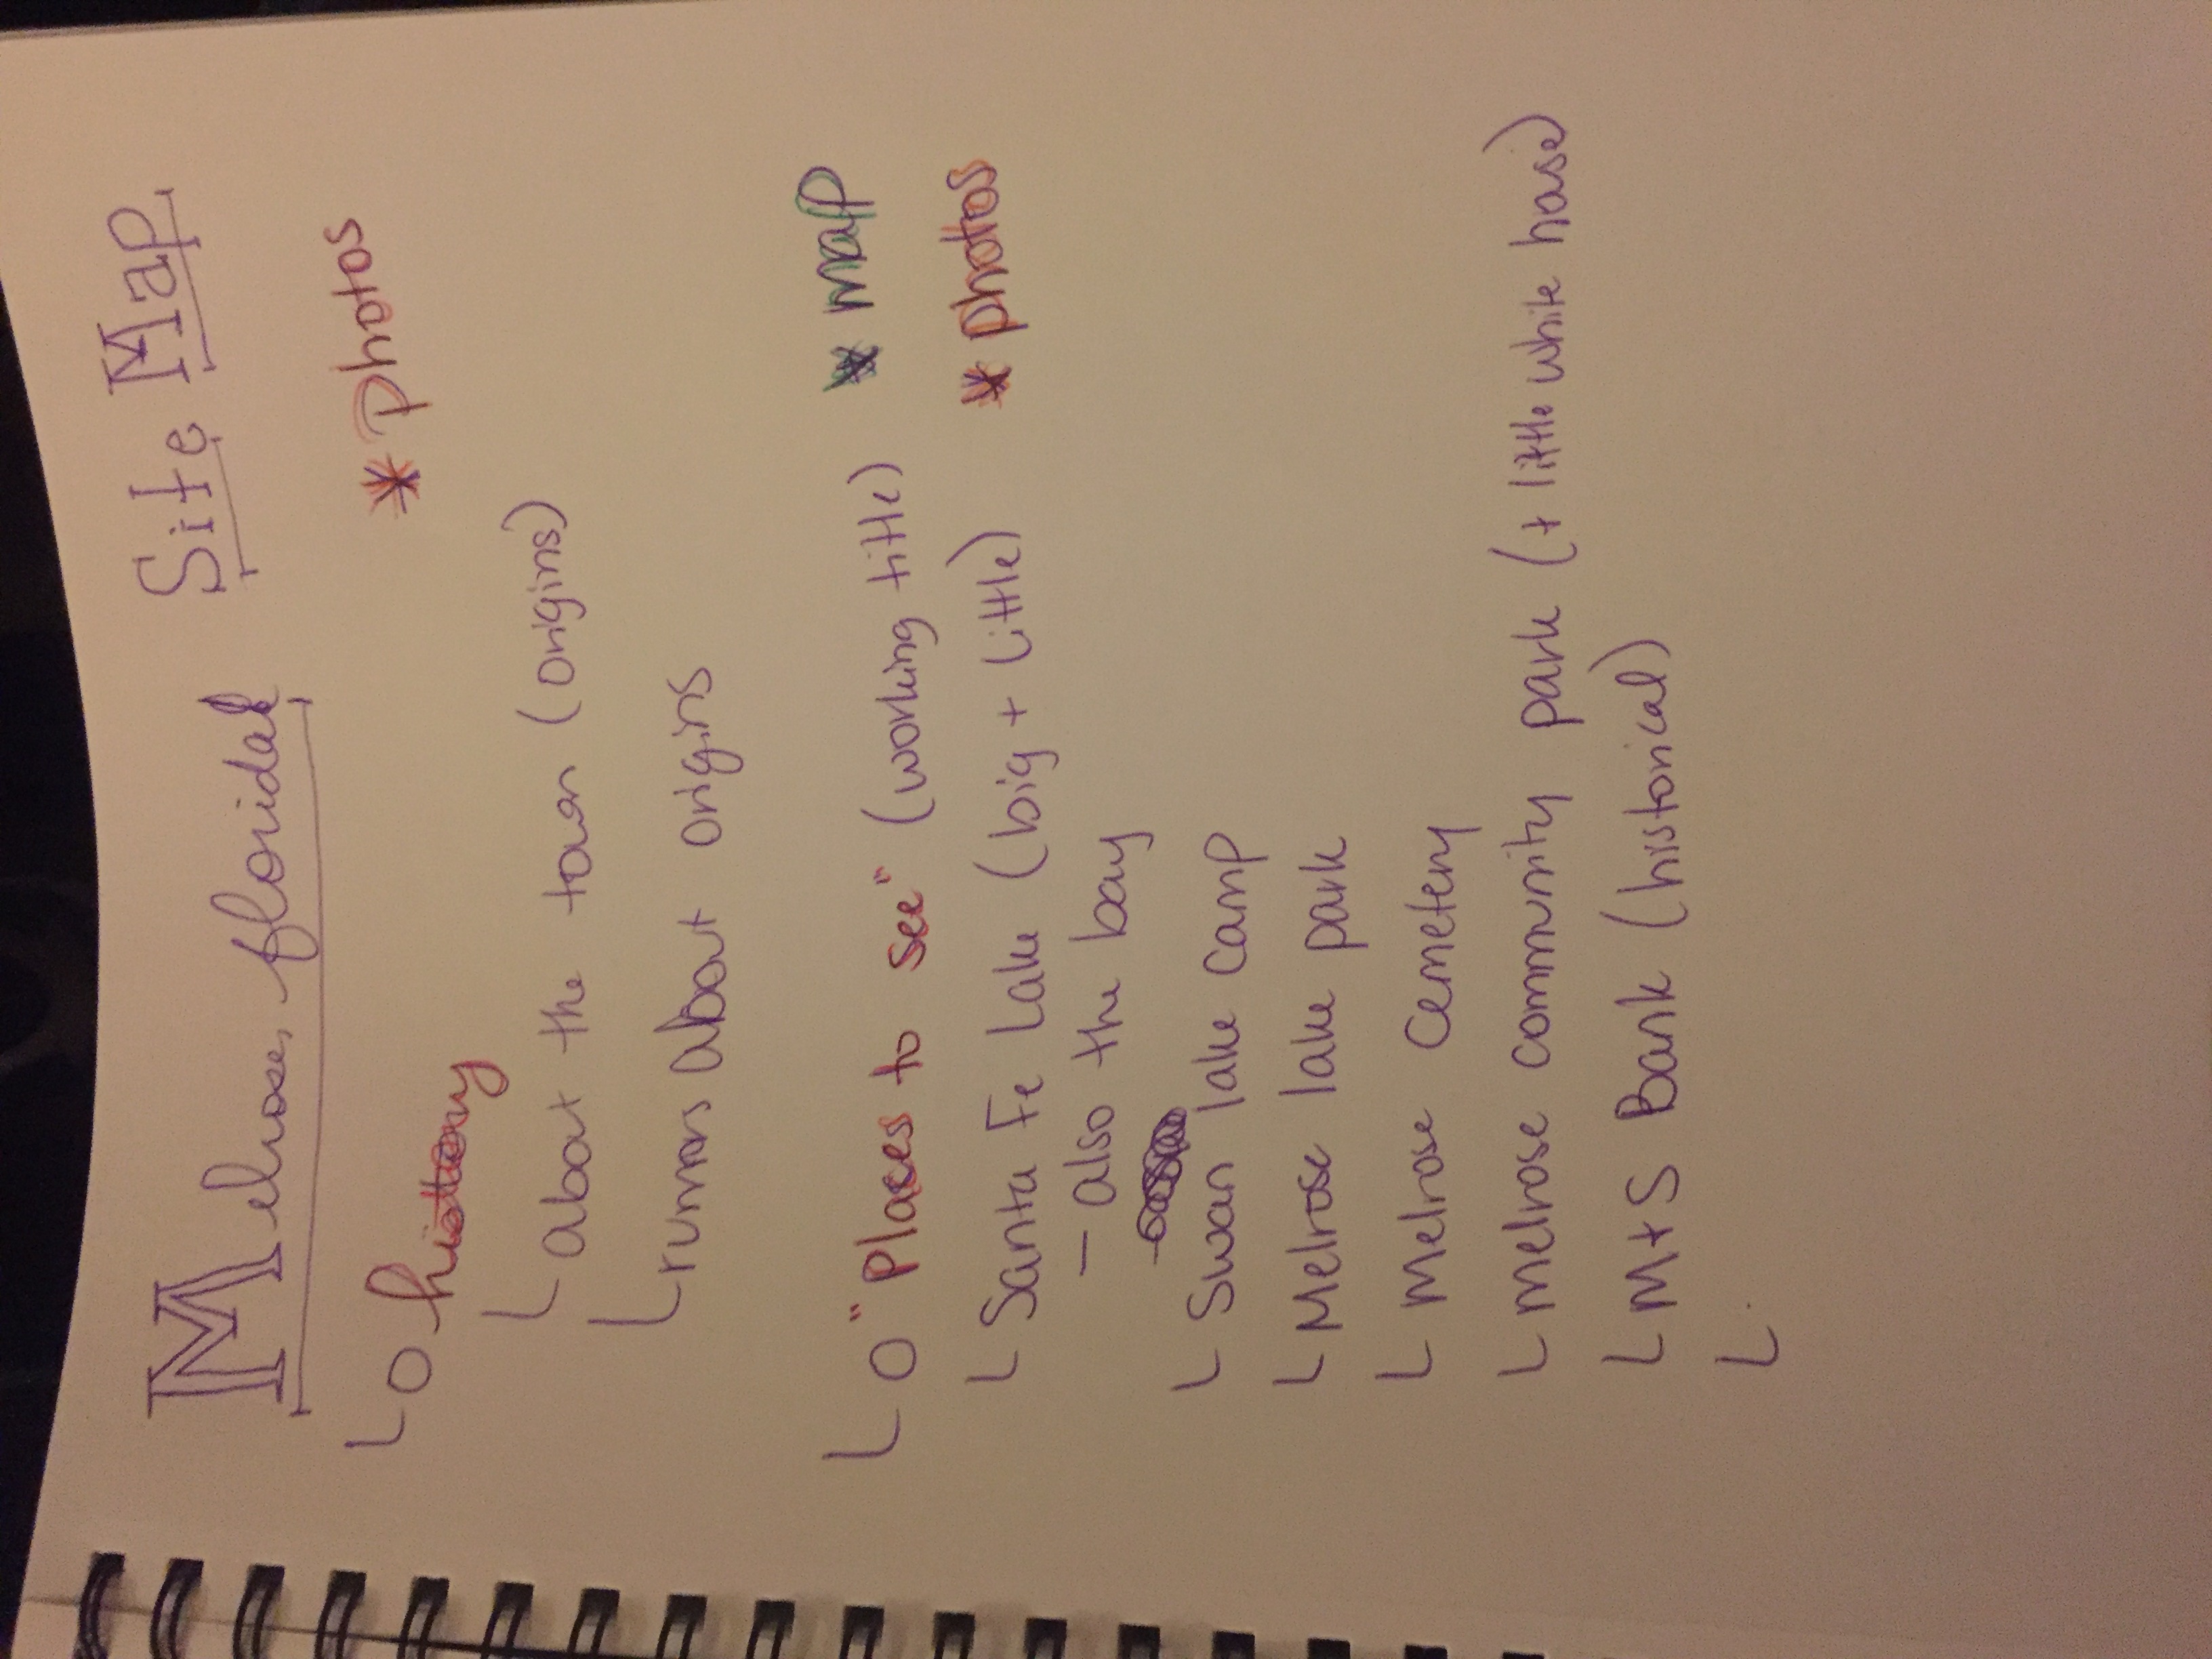 Melrose, florida Site Map
history * photos
about the town (origins)
rumors about origins
"Places to see" (working title) * map
Santa Fe Lake (big + little) * photos
- also the bay
Swan lake camp
Melrose lake park
Melrose cemetery
melrose community park (+ little white house)
M+S Bank (historical)